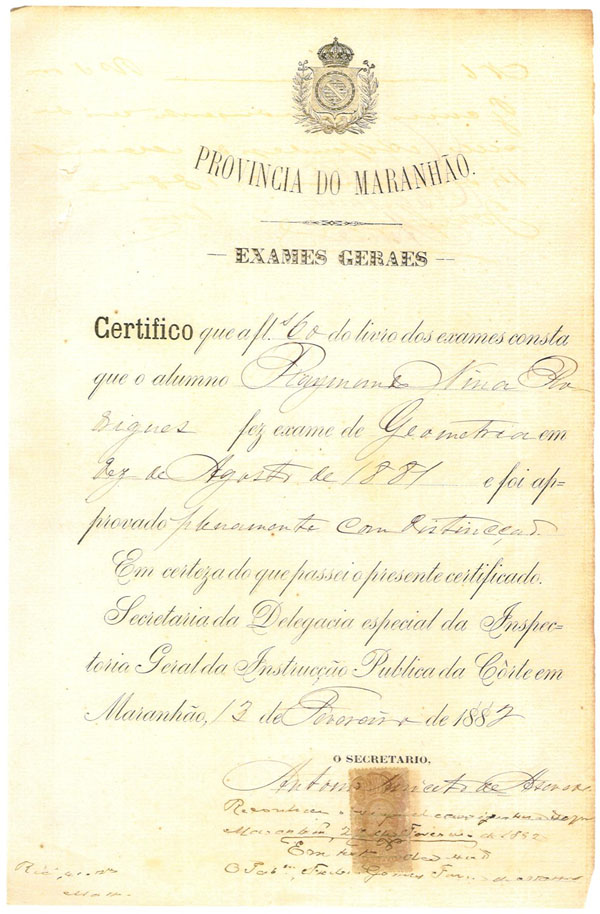 PROVINCIA DO MARANHÃO.
— EXAMES GERAES —
Certifico que a fl.s 60 do livro dos exames consta
que o alumno Raymundo Nina Ro
drigues fez exame de Geometria em
dez de Agosto de 1881 e foi ap=
provado plenamente com distincção
Em certeza do que passei o presente certificado.
Secretaria da Delegacia especial da Inspec=
toria Geral da Instrucção Publica da Côrte em
Maranhão, 13 de Fevereiro de 1882
O SECRETARIO,
Antonio de
Maranhão, de Fevereiro de 1882
Em de
O Gomes